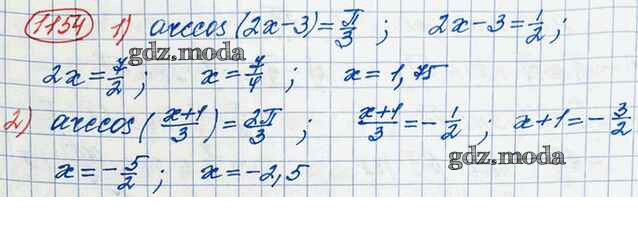 1154 1) arccos(2x-3)=π/3 ; 2x-3=1/2 ;
gdz.moda
2x=7/2 ; x=7/4 ; x=1,75
2) arccos((x+1)/3)=2π/3 ; (x+1)/3=-1/2 ; x+1=-3/2
gdz.moda
x=-5/2 ; x=-2,5